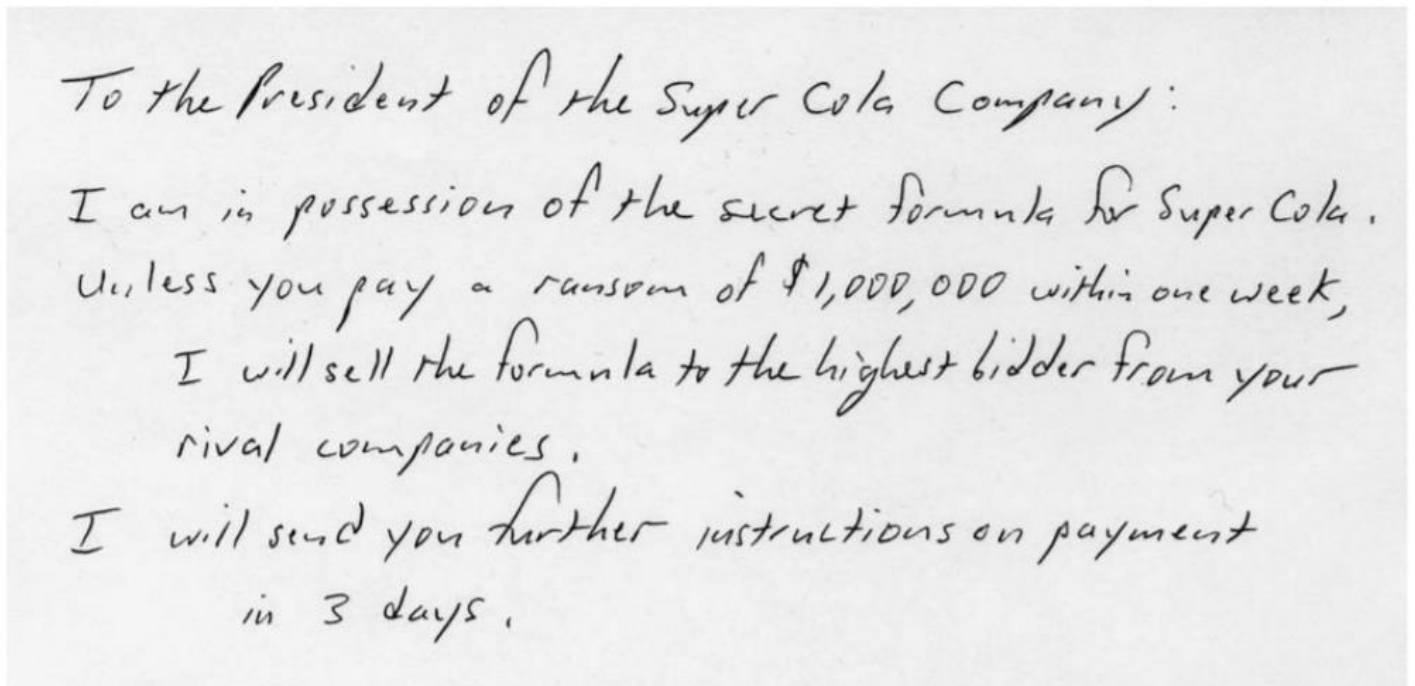 To the President of the Super Cola Company:
I am in possession of the secret formula for Super Cola.
Unless you pay a ransom of $1,000,000 within one week,
I will sell the formula to the highest bidder from your
rival companies.
I will send you further instructions on payment
in 3 days.